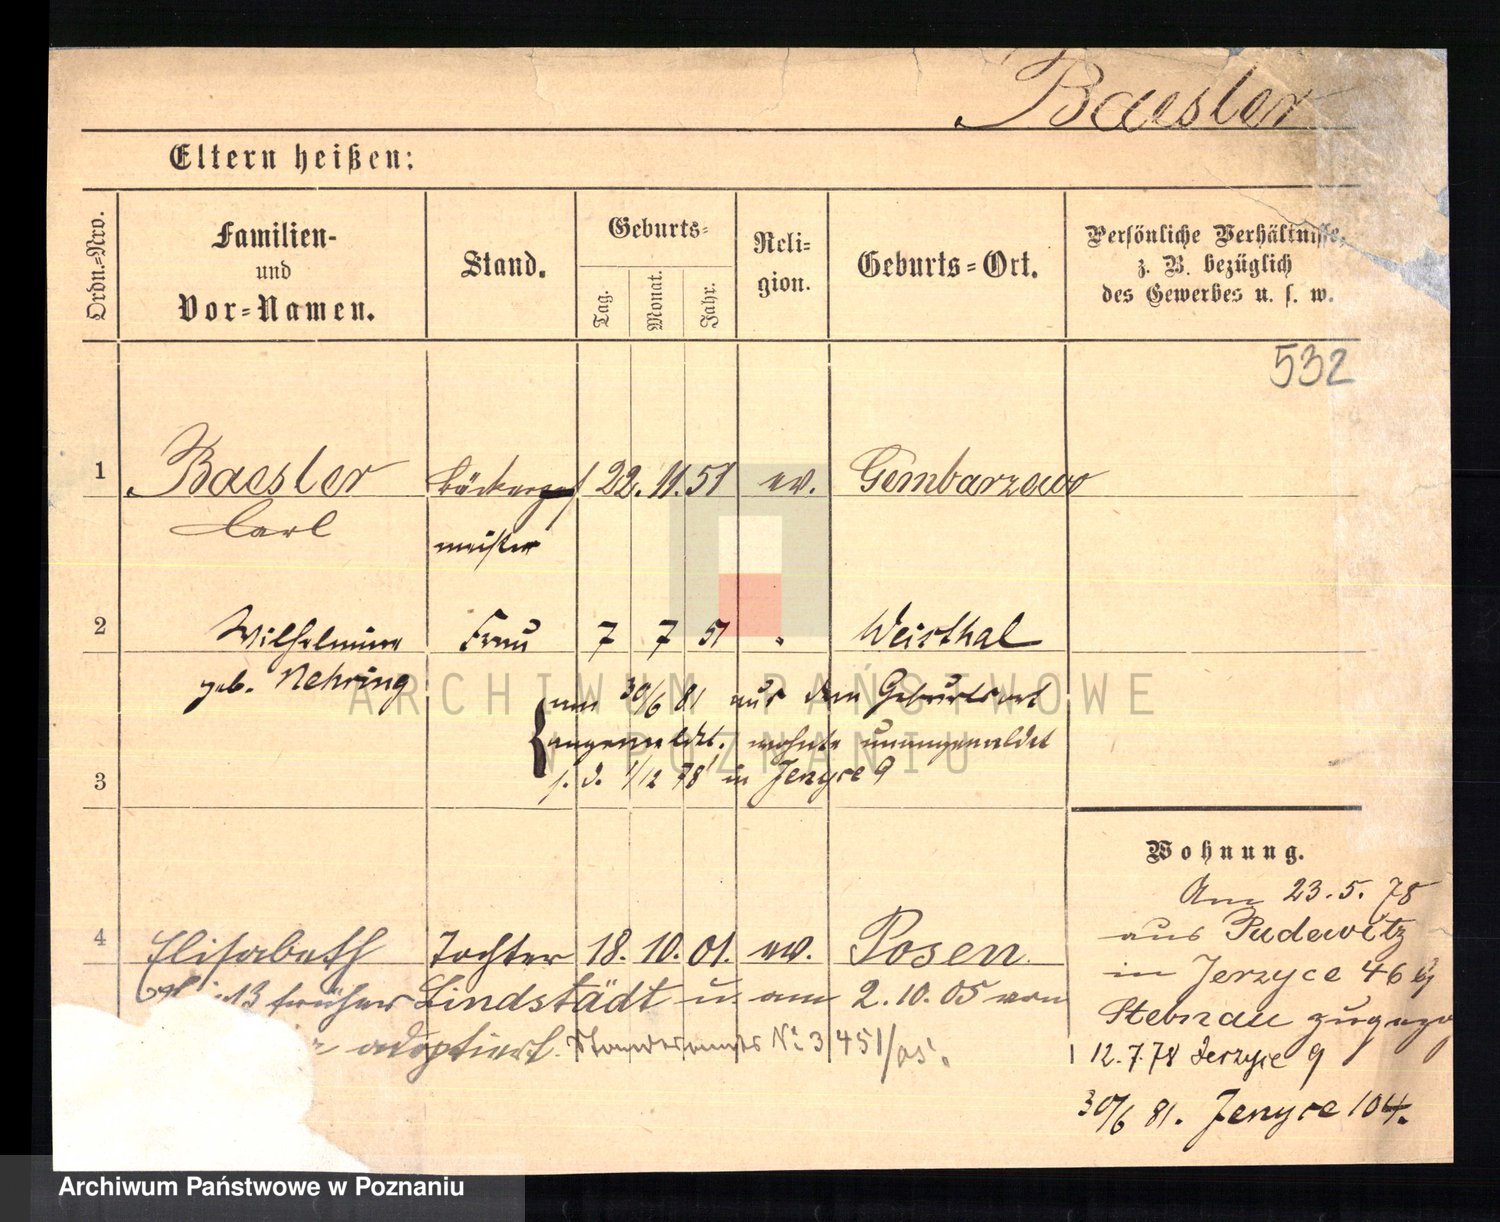 Baesler
Eltern heißen:
Ordn.=Nro.
Familien-
und
Vor=Namen.
Stand.
Geburts=
Tag.
Monat.
Jahr.
Reli=
gion.
Geburts=Ort.
Persönliche Verhältnisse,
z. B. bezüglich
des Gewerbes u. s. w.
532
1 Baesler 22. 11. 51 ev. Gembarzewo
Carl meister
2 Wilhelmine Frau 7 7 51 Weisthal
geb. Nehring
am 30/6 81 aus dem Geburtsort
angemeldet. wohnte unangemeldet
s. d. 1/12 78 in Jerzyce 9
3
Wohnung.
Am 23. 5. 78
aus Pudewitz
in Jerzyce 46
zugezo
12. 7. 78 Jerzyce 9
30/6 81. Jerzyce 104.
4 Elisabeth Tochter 18. 10. 01. ev. Posen
früher Lindstädt u. am 2. 10. 05 von
adoptiert. Standesamts No 3451/05.
ARCHIWUM PAŃSTWOWE
W POZNANIU
Archiwum Państwowe w Poznaniu